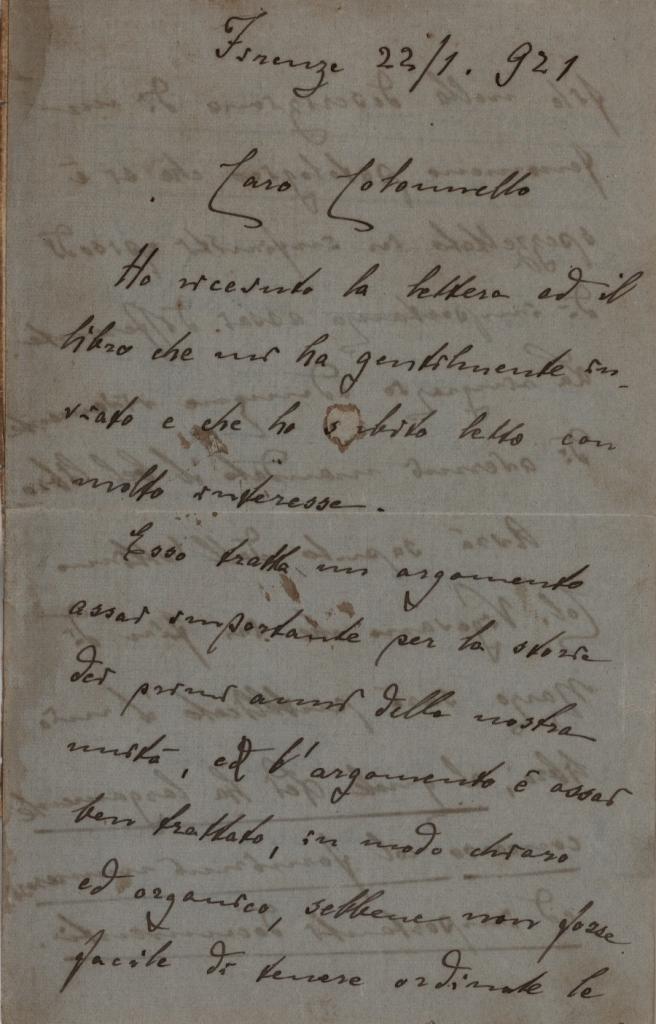 Firenze 22/1. 921
Caro Colonnello
Ho ricevuto la lettera ed il
libro che mi ha gentilmente in-
viato e che ho subito letto con
molto interesse.
Esso tratta un argomento
assai importante per la storia
dei primi anni della nostra
unità, ed l'argomento è assai
ben trattato, in modo chiaro
ed organico, sebbene non fosse
facile di tenere ordinate le